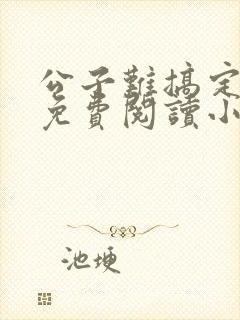 公子難搞定
免費閱讀小
池埂